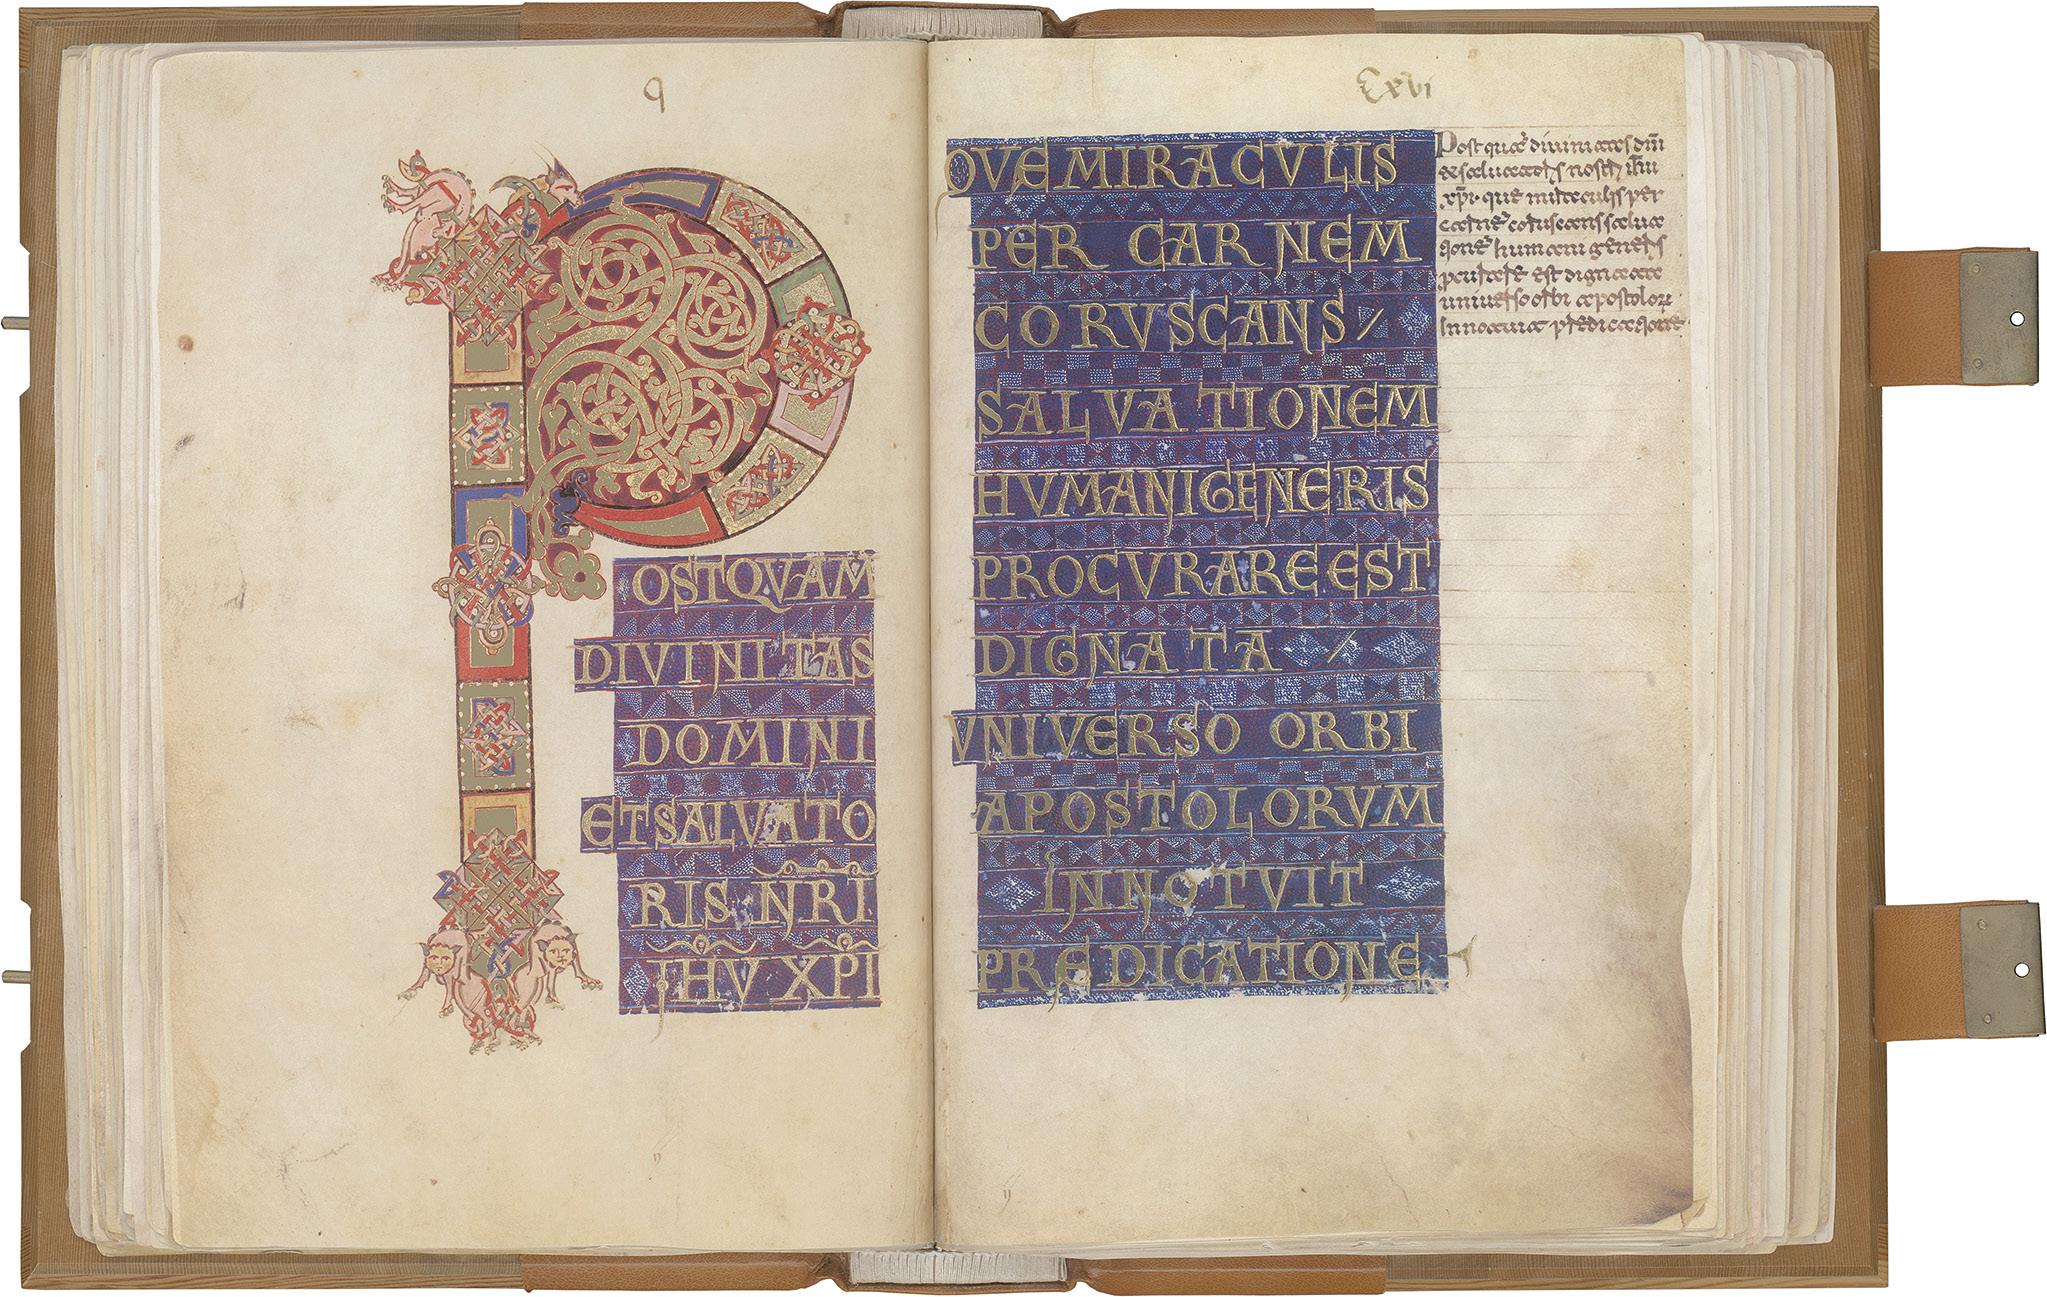 q
P
OSTQVAM
DIVINITAS
DOMINI
ETSALVATO
RIS NRI
IHV XPI
Cxvi
QVE MIRACVLIS
PER CARNEM
CORVSCANS
SALVATIONEM
HVMANI GENERIS
PROCVRARE EST
DIGNATA
VNIVERSO ORBI
APOSTOLORVM
INNOTVIT
PREDICATIONE
Postquã divinitas dñi
et salvatoris nostri ihu
xpi que miraculis per
carnẽ coruscans salva
humani generis
est dignata
universo orbi apostolorũ
innotuit